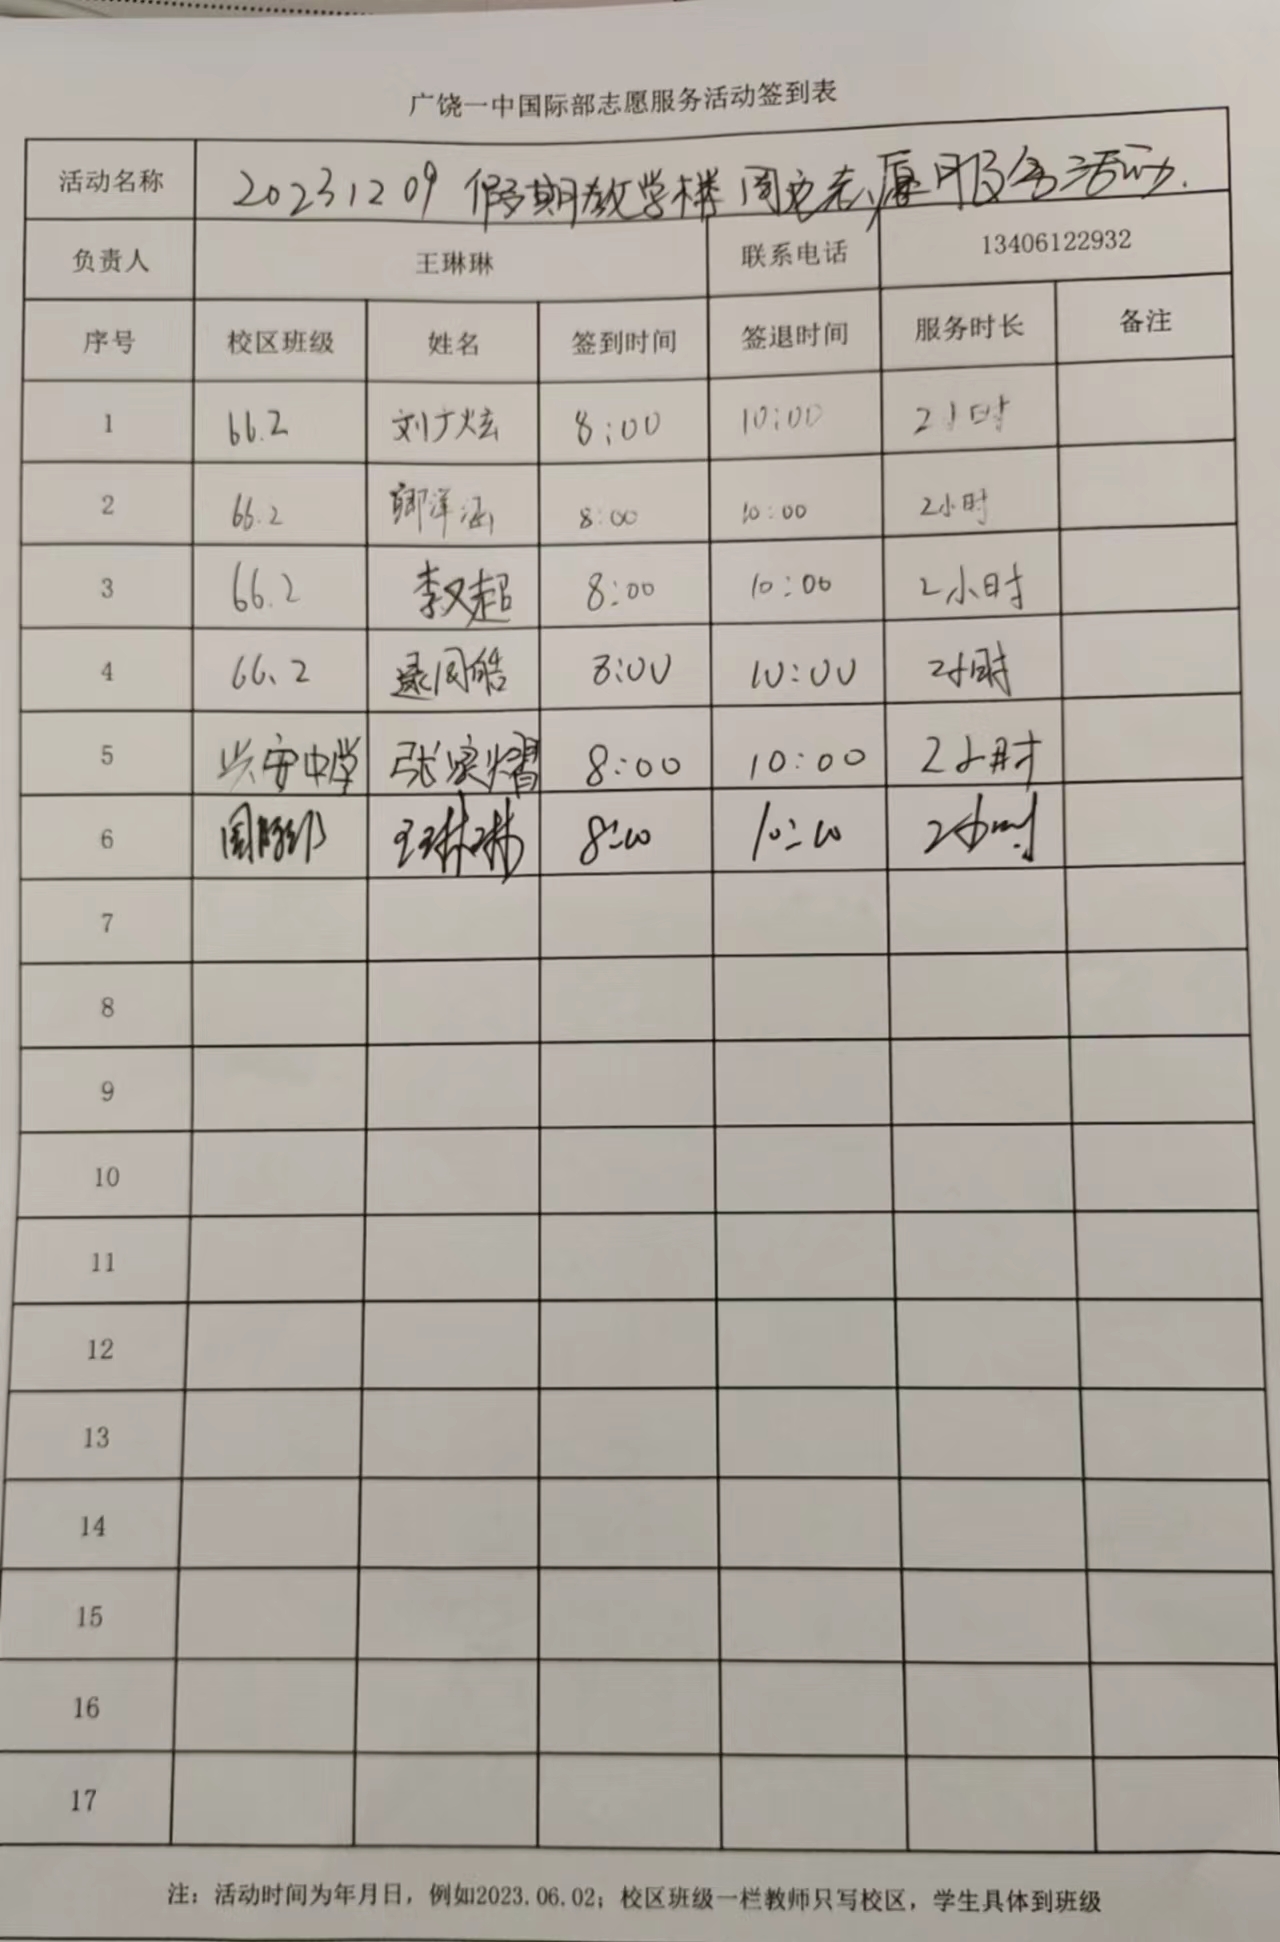 广饶一中国际部志愿服务活动签到表
活动名称 20231209 假期教学楼周边志愿服务活动.
负责人 王琳琳 联系电话 13406122932
序号 校区班级 姓名 签到时间 签退时间 服务时长 备注
1 66.2 刘广炫 8:00 10:00 2小时
2 66.2 洋涵 8:00 10:00 2小时
3 66.2 李又超 8:00 10:00 2小时
4 66.2 8:00 10:00 2小时
5 兴安中学 张宸熠 8:00 10:00 2小时
6 国际部 王琳琳 8:00 10:00 2小时
7
8
9
10
11
12
13
14
15
16
17
注：活动时间为年月日，例如2023.06.02；校区班级一栏教师只写校区，学生具体到班级